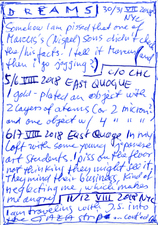 DREAMS 30/31 VII 2018
NYC
Somehow I am pissed that one of
Marcel's (Digan) sons didn't check
the/his facts. I tell it
then I go jogging?
c/o CHC
5/6 VIII 2018 EAST QUOGUE
I gold-plated an object with
2 layers of atoms (or 2 micron)
and one object w/ 4 " "
6/7 VIII 2018 East Quogue In my
loft with some young Japanese
art students. I piss on the floor
not thinking they might see it.
They mind their business, kind of
neglecting me, which makes
me angry 11/12 VIII 2018 NYC
I am traveling with J.S. into
the GAZA strip